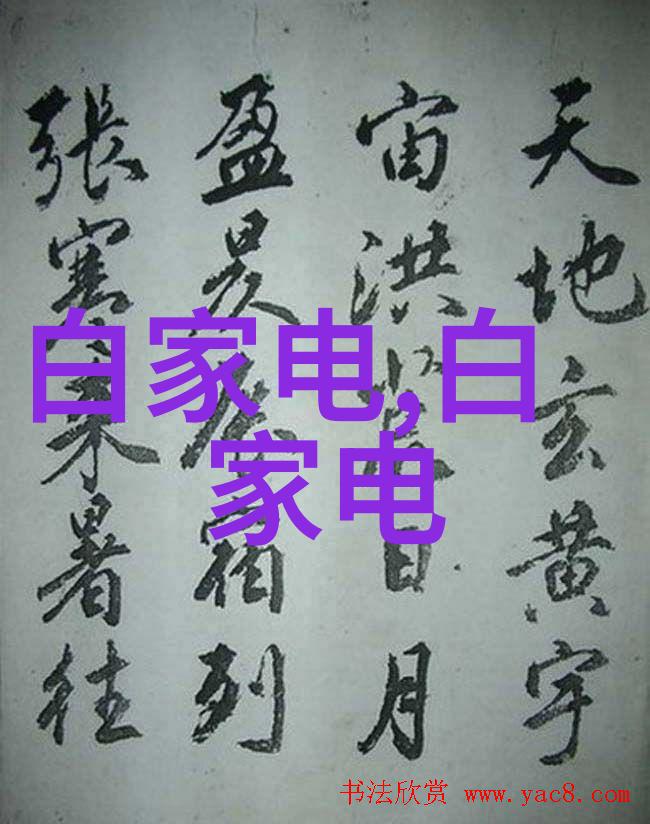 天地玄黄宇
宙洪荒日月
盈昃辰宿列
張寒来暑往
白家电,白
家电
书法欣赏 www.yac8.com